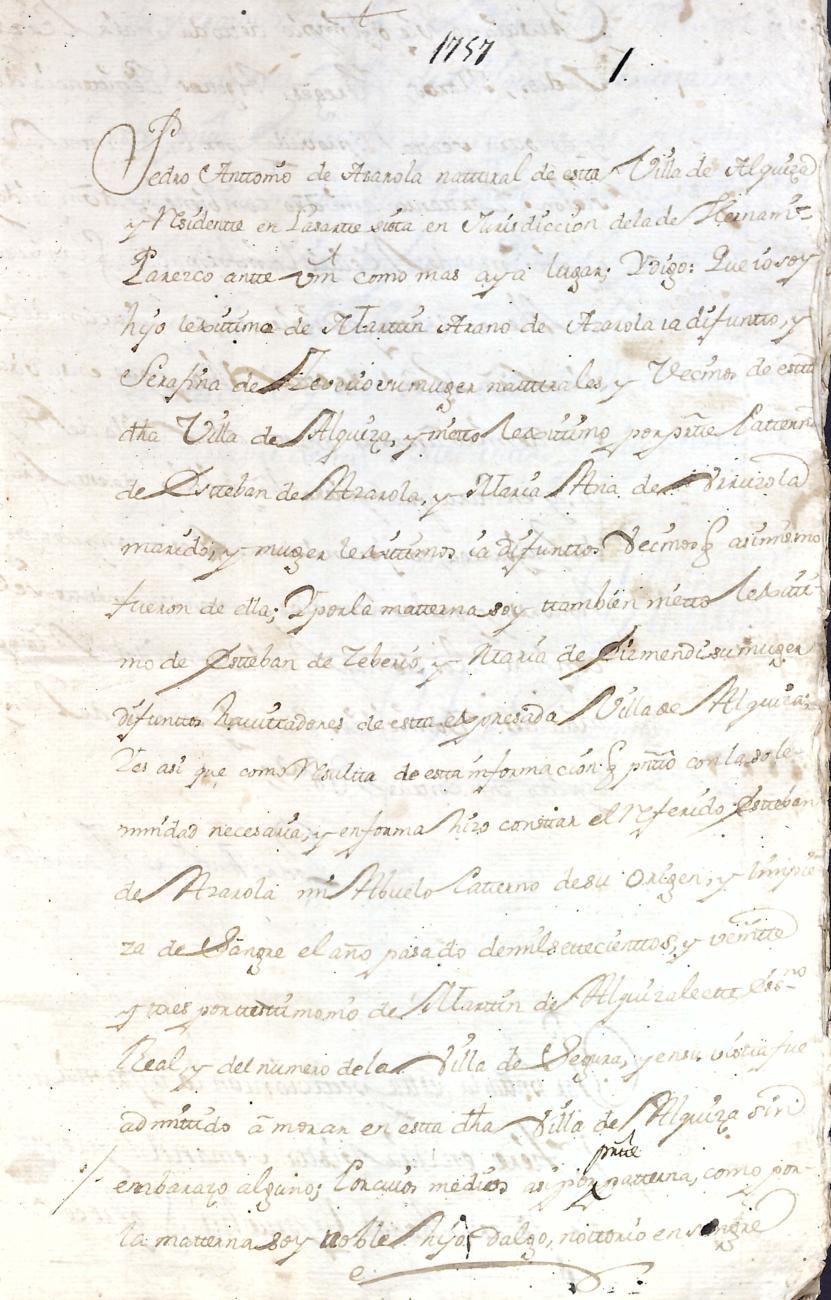 1757
1.
Pedro Anttonio de Azarola nattural de estta Villa de Alquiza
y Residentte en Lasartte sitta en Jurisdiccion de la de Hernani
Parezco antte Vm como mas aya lugar; Y digo: Que io soy
hijo lexittimo de Martin Arano de Azarola ia difuntto, y
Serafina de su muger natturales, y Vecinos de estta
dha Villa de Alquiza, y nietto lexittimo por prtte Patterna
de Esteban de Azarola, y Maria Ana de Urruzola
marido, y muger lexittimos ia difunttos Vecinos q asimismo
fueron de ella; Y por la matterna soy ttambien nietto lexitti-
mo de Estteban de Zeberio, y Maria de Eizmendi su muger
difunttos Havittadores de estta expresada Villa de Alquiza;
Y es asi que como Resultta de estta informacion q prntto con la sole-
mnidad necesaria, y en forma hizo consttar el Referido Estteban
de Azarola mi Abuelo Patterno de su Origen, y limpie-
za de Sangre el año pasado de mil settecienttos, y veintte
y tres por testtimonio de Martin de Alquizalette Essno
Real, y del numero de la Villa de Segura, y en su vistta fue
admittido â morar en estta dha Villa de Alquiza sin
prtte
embarazo alguno; Por cuios medios asi por patterna, como por
la matterna soy noble hijo dalgo, nottorio en sangre